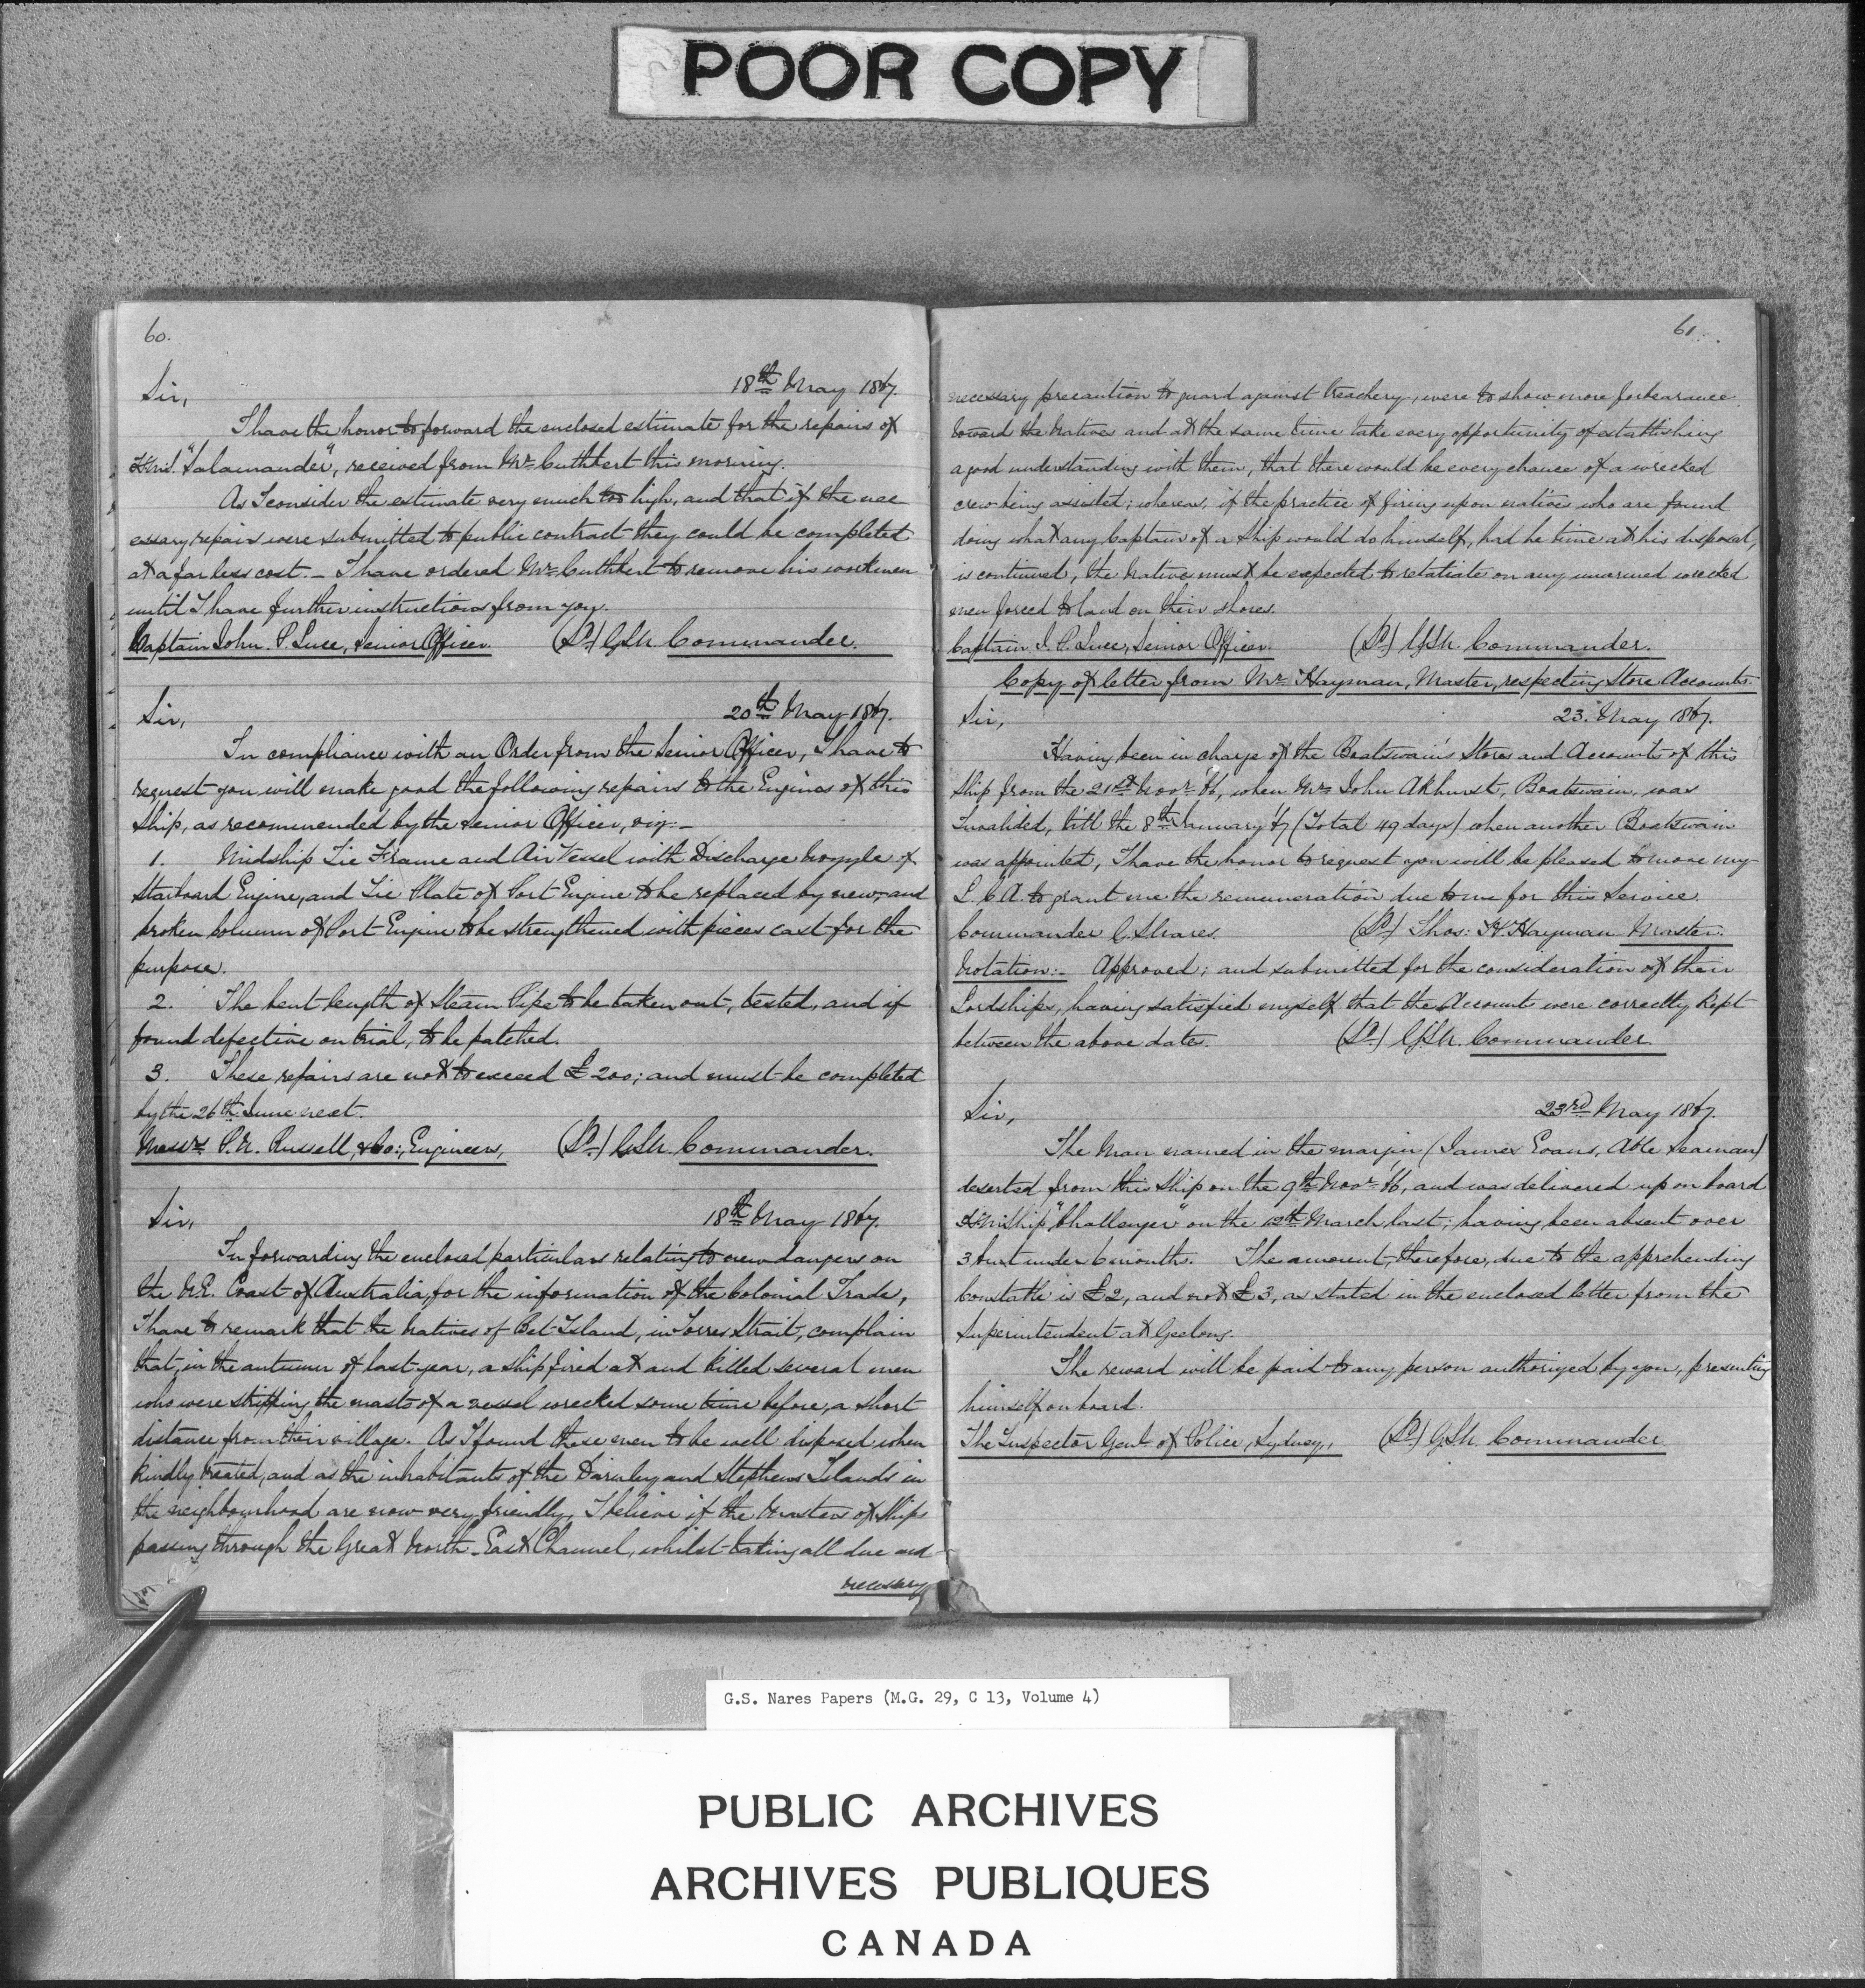 POOR COPY
60.
18th May 1867.
Sir,
I have the honor to forward the enclosed estimate for the repairs of
H.M.S. "Salamander", received from Mr. Cuthbert this morning.
As I consider the estimate very much too high, and that if the nec
essary repairs were submitted to public contract they could be completed
at a far less cost. – I have ordered Mr. Cuthbert to remove his workmen
until I have further instructions from you.
Captain John P. Luce, Senior Officer. (Sd.) GSN. Commander.
20th May 1867.
Sir,
In compliance with an Order from the Senior Officer, I have to
request you will make good the following repairs to the Engines of this
Ship, as recommended by the Senior Officer, viz. –
1. Midship Tie Frame and Air Vessel with Discharge of
Starboard Engine, and Tie Plate of Port Engine to be replaced by new, and
broken column of Port Engine to be strengthened with pieces cast for the
purpose.
2. The bent length of Steam Pipe to be taken out, tested, and if
found defective on trial, to be patched.
3. These repairs are not to exceed £200; and must be completed
by the 26th June next.
Messrs P.N. Russell, & Co:, Engineers, (Sd.) GSN. Commander.
18th May 1867.
Sir,
In forwarding the enclosed particulars relating to new dangers on
the N.E. Coast of Australia, for the information of the Colonial Trade,
I have to remark that the Natives of Bet Island, in Torres Strait, complain
that, in the autumn of last year, a ship fired at and killed several men
who were stripping the masts of a vessel wrecked some time before, a short
distance from their village. As I found these men to be well disposed when
kindly treated, and as the inhabitants of the Darnley and Stephens Islands in
the neighbourhood are now very friendly, I believe if the Masters of Ships
passing through the Great North-East Channel, whilst taking all due and
necessary
61.
necessary precaution to guard against treachery, were to show more forbearance
toward the Natives and at the same time take every opportunity of establishing
a good understanding with them, that there would be every chance of a wrecked
crew being assisted; whereas, if the practice of firing upon natives who are found
doing what any Captain of a Ship would do himself, had he time at his disposal,
is continued, the Natives must be expected to retaliate on any unarmed wrecked
men forced to land on their shores.
Captain J. P. Luce, Senior Officer. (Sd.) GSN. Commander.
Copy of letter from Mr. Hayman, Master, respecting Store Accounts.
Sir, 23. May 1867.
Having been in charge of the Boatswain's Stores and Accounts of this
Ship from the 21st Novr. '66, when Mr. John Akhurst, Boatswain, was
Invalided, till the 8th January '67 (Total 49 days) when another Boatswain
was appointed, I have the honor to request you will be pleased to move my
L.C.A. to grant me the remuneration due to me for this Service.
Commander G.S. Nares. (Sd.) Thos: H. Hayman Master.
Notation:– Approved; and submitted for the consideration of their
Lordships, having satisfied myself that the Accounts were correctly kept
between the above dates. (Sd.) GSN. Commander.
Sir, 23rd May 1867.
The Man named in the margin (James Evans, Able Seaman)
deserted from this Ship on the 9th Novr. '66, and was delivered up on board
H.M. Ship "Challenger" on the 12th March last; having been absent over
3 but under 6 months. The amount, therefore, due to the apprehending
Constable is £2, and not £3, as stated in the enclosed letter from the
Superintendent at Geelong.
The reward will be paid to any person authorized by you, presenting
himself on board.
The Inspector Genl. of Police, Sydney, (Sd.) GSN. Commander
G.S. Nares Papers (M.G. 29, C 13, Volume 4)
PUBLIC ARCHIVES
ARCHIVES PUBLIQUES
CANADA